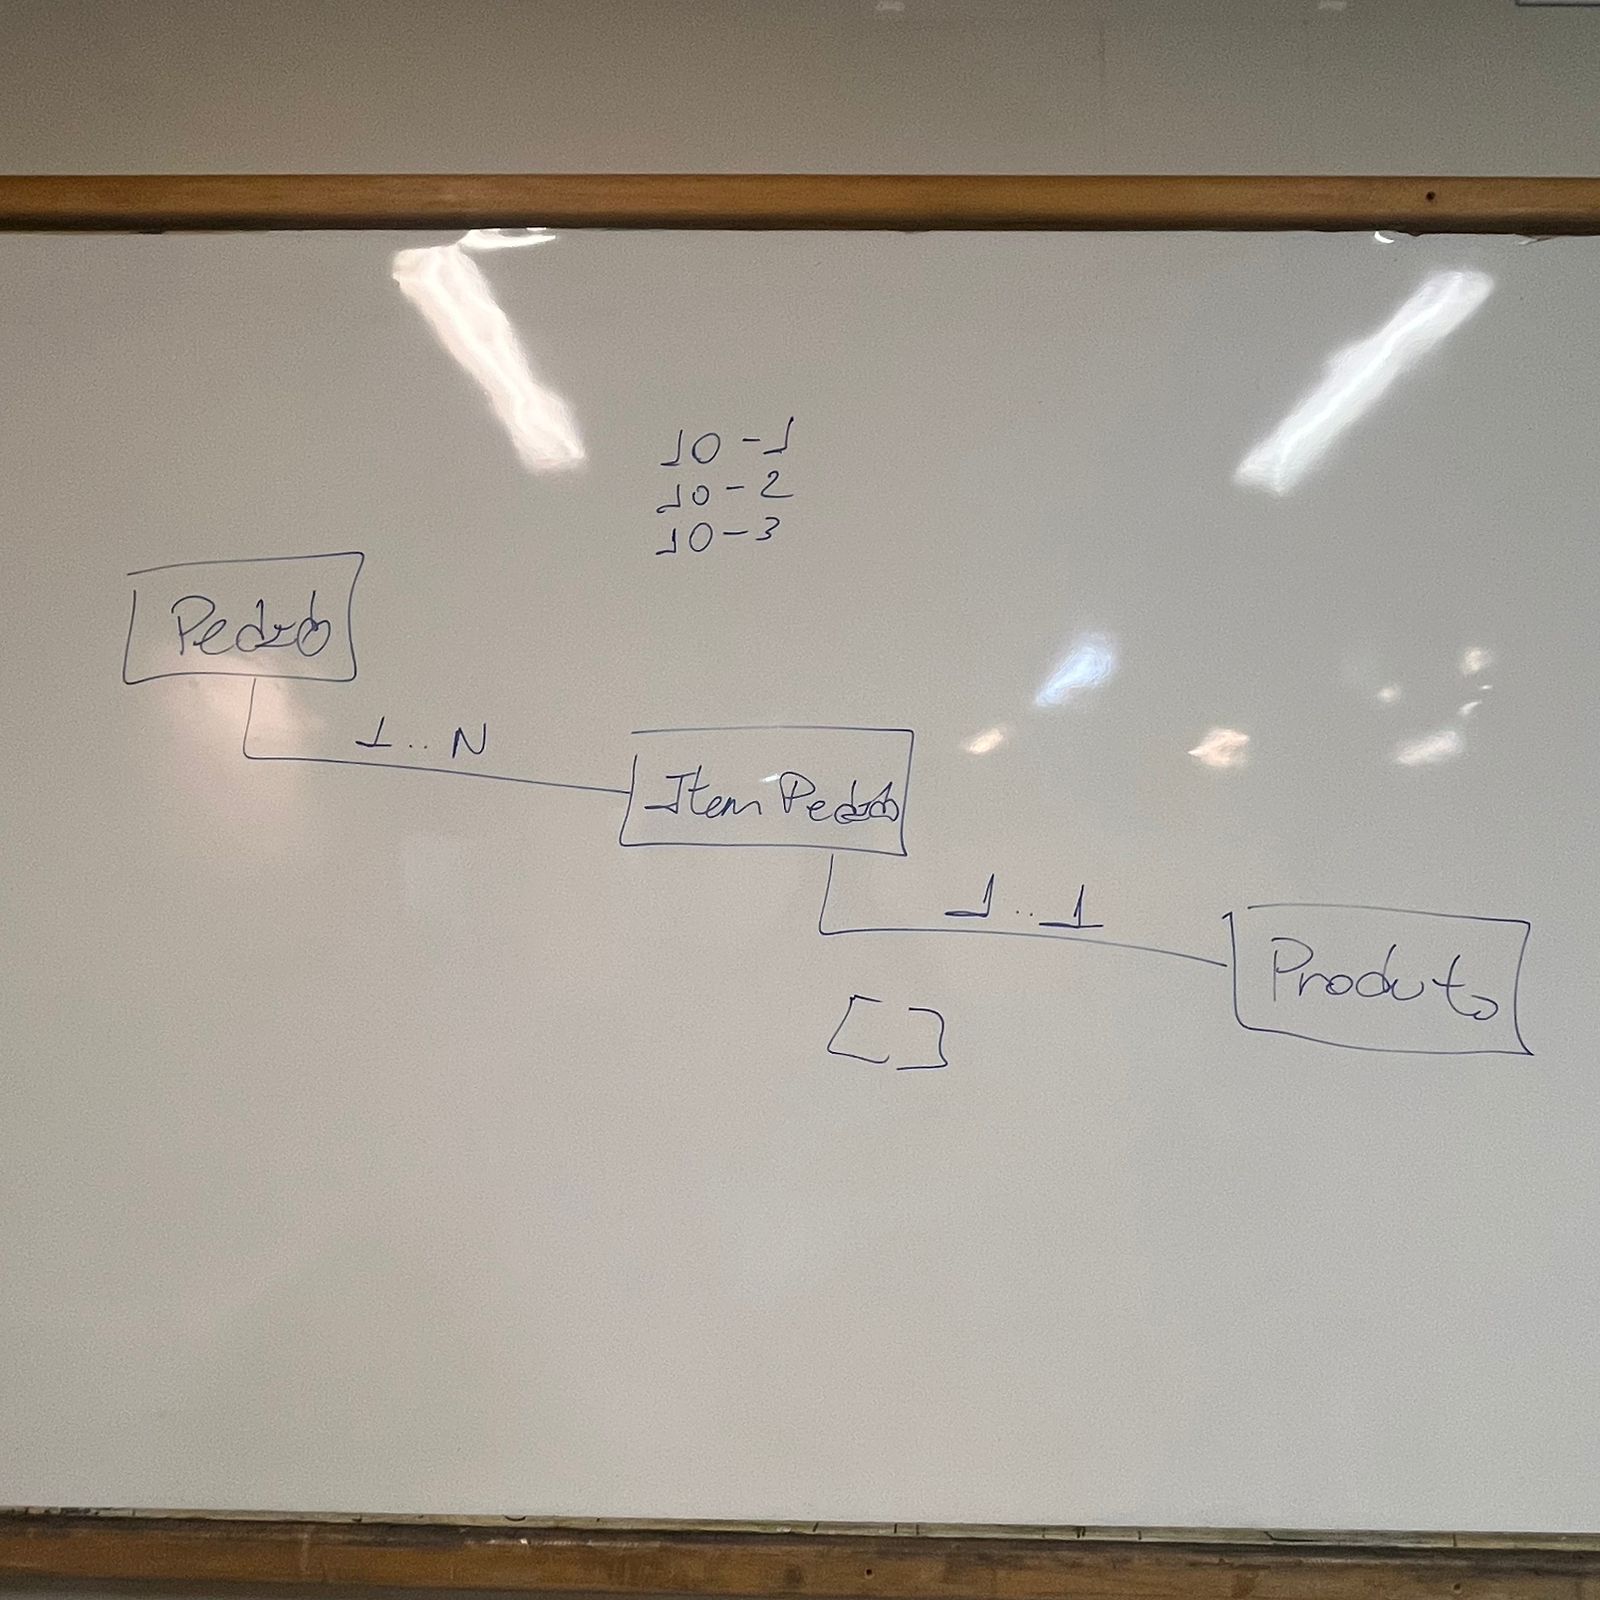 10 - 1
10 - 2
10 - 3
Pedido
1 .. N
Item Pedido
1 .. 1
Produto
[ ]